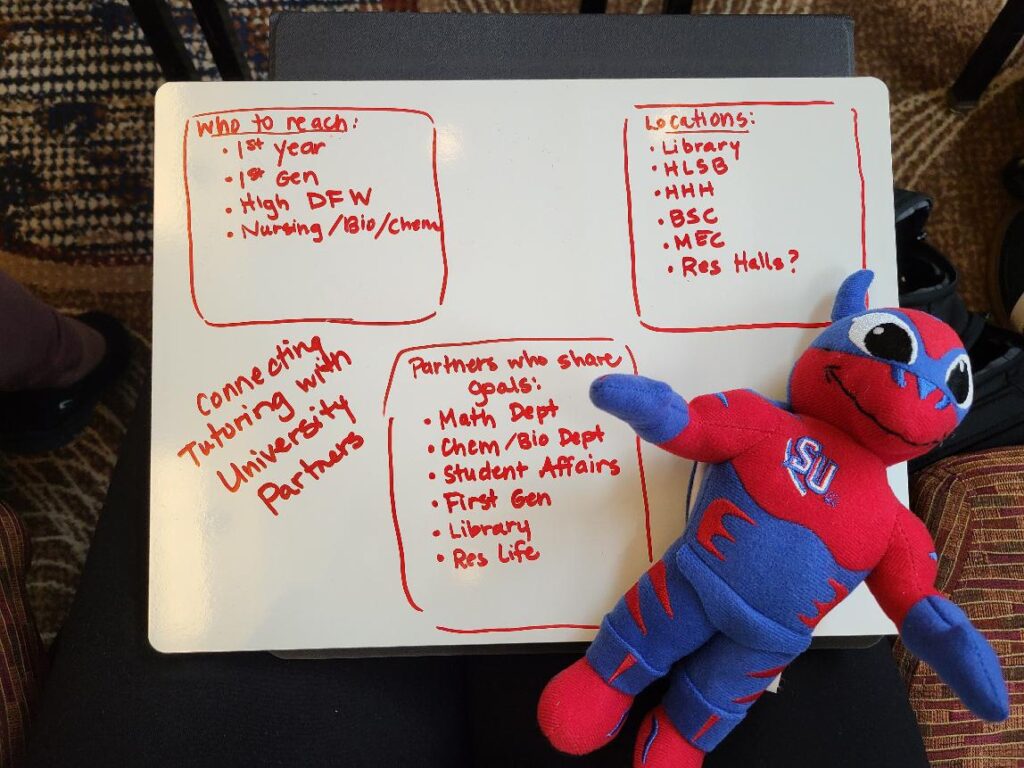 Who to reach:
• 1st year
• 1st Gen
• High DFW
• Nursing/Bio/Chem
Locations:
• Library
• HLSB
• HHH
• BSC
• MEC
• Res Halls?
Connecting
Tutoring with
University
Partners
Partners who share
goals:
• Math Dept
• Chem/Bio Dept
• Student Affairs
• First Gen
• Library
• Res Life
SU